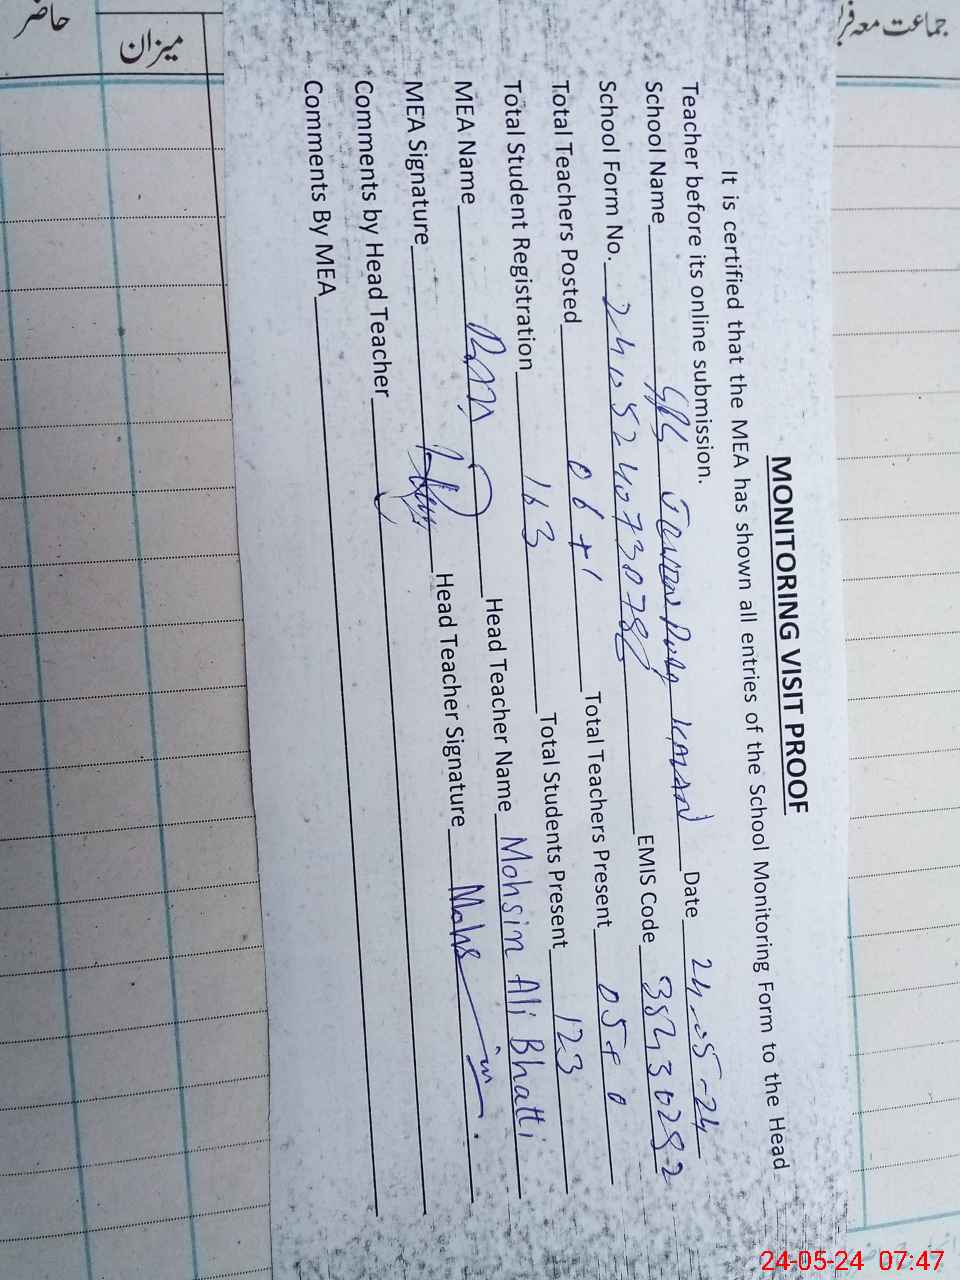 حاضر
میزان
جماعت معہ
MONITORING VISIT PROOF
It is certified that the MEA has shown all entries of the School Monitoring Form to the Head
Teacher before its online submission.
School Name GPS KALAN Date 24-05-24
School Form No. EMIS Code
Total Teachers Posted 06+1 Total Teachers Present 05+0
Total Student Registration 163 Total Students Present 123
MEA Name Head Teacher Name Mohsin Ali Bhatti
MEA Signature Head Teacher Signature Mohsin
Comments by Head Teacher
Comments By MEA
24-05-24 07:47